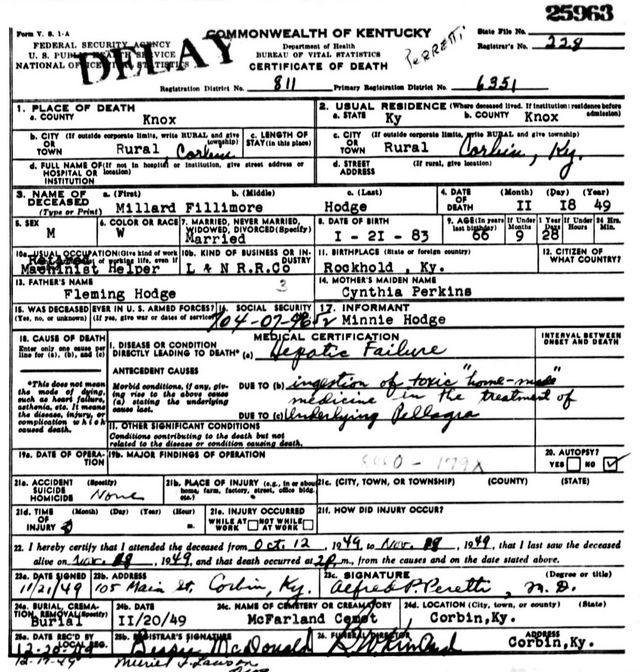 25963
Form V. S. 1-A
COMMONWEALTH OF KENTUCKY
State File No.
FEDERAL SECURITY AGENCY
Department of Health
Registrar's No. 228
U. S. PUBLIC HEALTH SERVICE
BUREAU OF VITAL STATISTICS
NATIONAL OFFICE VITAL STATISTICS
CERTIFICATE OF DEATH
DELAY
PERRETTI
Registration District No. 811 Primary Registration District No. 6351
1. PLACE OF DEATH
2. USUAL RESIDENCE (Where deceased lived. If institution: residence before admission)
a. COUNTY Knox
a. STATE Ky b. COUNTY Knox
b. CITY (If outside corporate limits, write RURAL and give township) OR TOWN Rural Corbin
c. LENGTH OF STAY (in this place)
c. CITY (If outside corporate limits, write RURAL and give township) OR TOWN Rural Corbin, Ky.
d. FULL NAME OF (If not in hospital or institution, give street address or location) HOSPITAL OR INSTITUTION
d. STREET ADDRESS (If rural, give location)
3. NAME OF DECEASED (Type or Print)
a. (First) Millard
b. (Middle) Fillimore
c. (Last) Hodge
4. DATE OF DEATH (Month) (Day) (Year) 11 18 49
5. SEX M
6. COLOR OR RACE W
7. MARRIED, NEVER MARRIED, WIDOWED, DIVORCED (Specify) Married
8. DATE OF BIRTH 1-21-83
9. AGE (In years last birthday) 66
If Under 1 Year Months 9 Days 28
If Under 24 Hrs. Hours Min.
10a. USUAL OCCUPATION (Give kind of work of working life, even if Retired
Machinist Helper
10b. KIND OF BUSINESS OR INDUSTRY L & N R.R.Co
11. BIRTHPLACE (State or foreign country) Rockhold, Ky.
12. CITIZEN OF WHAT COUNTRY?
13. FATHER'S NAME Fleming Hodge
3
14. MOTHER'S MAIDEN NAME Cynthia Perkins
15. WAS DECEASED EVER IN U. S. ARMED FORCES? (Yes, no, or unknown) (If yes, give war or dates of service)
16. SOCIAL SECURITY 704-07-9652
17. INFORMANT Minnie Hodge
18. CAUSE OF DEATH
Enter only one cause per line for (a), (b), and (c)
MEDICAL CERTIFICATION
INTERVAL BETWEEN ONSET AND DEATH
I. DISEASE OR CONDITION DIRECTLY LEADING TO DEATH* (a) Hepatic Failure
*This does not mean the mode of dying, such as heart failure, asthenia, etc. It means the disease, injury, or complication which caused death.
ANTECEDENT CAUSES
Morbid conditions, if any, giving rise to the above cause (a) stating the underlying cause last.
DUE TO (b) ingestion of toxic "home-made"
medicine in the treatment of
DUE TO (c) Underlying Pellagra
II. OTHER SIGNIFICANT CONDITIONS
Conditions contributing to the death but not related to the disease or condition causing death.
19a. DATE OF OPERATION
19b. MAJOR FINDINGS OF OPERATION
20. AUTOPSY?
YES NO
21a. ACCIDENT SUICIDE HOMICIDE (Specify) None
21b. PLACE OF INJURY (e.g., in or about home, farm, factory, street, office bldg. etc.)
21c. (CITY, TOWN, OR TOWNSHIP) (COUNTY) (STATE)
21d. TIME OF INJURY (Month) (Day) (Year) (Hour)
21e. INJURY OCCURRED WHILE AT WORK NOT WHILE AT WORK
21f. HOW DID INJURY OCCUR?
22. I hereby certify that I attended the deceased from Oct. 12, 1949, to Nov. 18, 1949, that I last saw the deceased
alive on Nov. 18, 1949, and that death occurred at 2P m., from the causes and on the date stated above.
23a. DATE SIGNED 11/21/49
23b. ADDRESS 105 Main St. Corbin, Ky.
23c. SIGNATURE (Degree or title) Alfred P. Peretti, M.D.
24a. BURIAL, CREMATION, REMOVAL (Specify) Burial
24b. DATE 11/20/49
24c. NAME OF CEMETERY OR CREMATORY McFarland Cemet
24d. LOCATION (City, town, or county) (State) Corbin, Ky.
25a. DATE REC'D BY LOCAL REG. 12-20-49
12-17-49
25b. REGISTRAR'S SIGNATURE Bessie McDonald
26. FUNERAL DIRECTOR
ADDRESS Corbin, Ky.